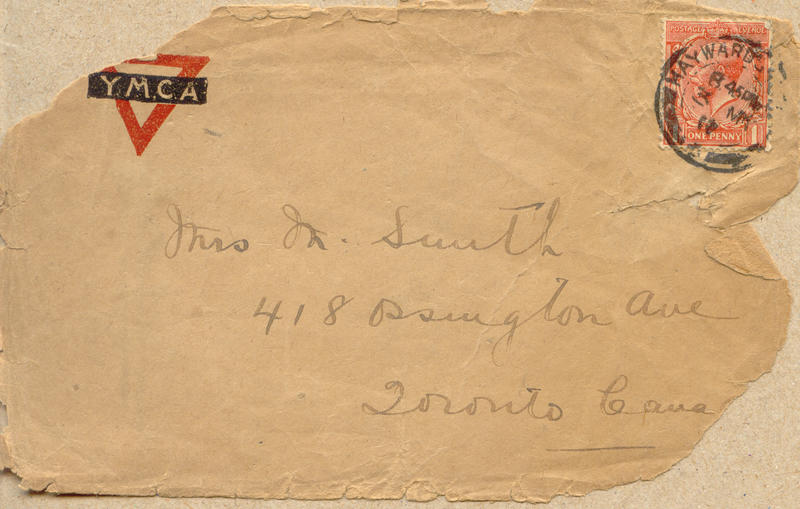 YMCA
POSTAGE REVENUE
HAYWARDS
8.45PM
ONE PENNY 1
Mrs M. Smith
418 Ossington Ave
Toronto Cana